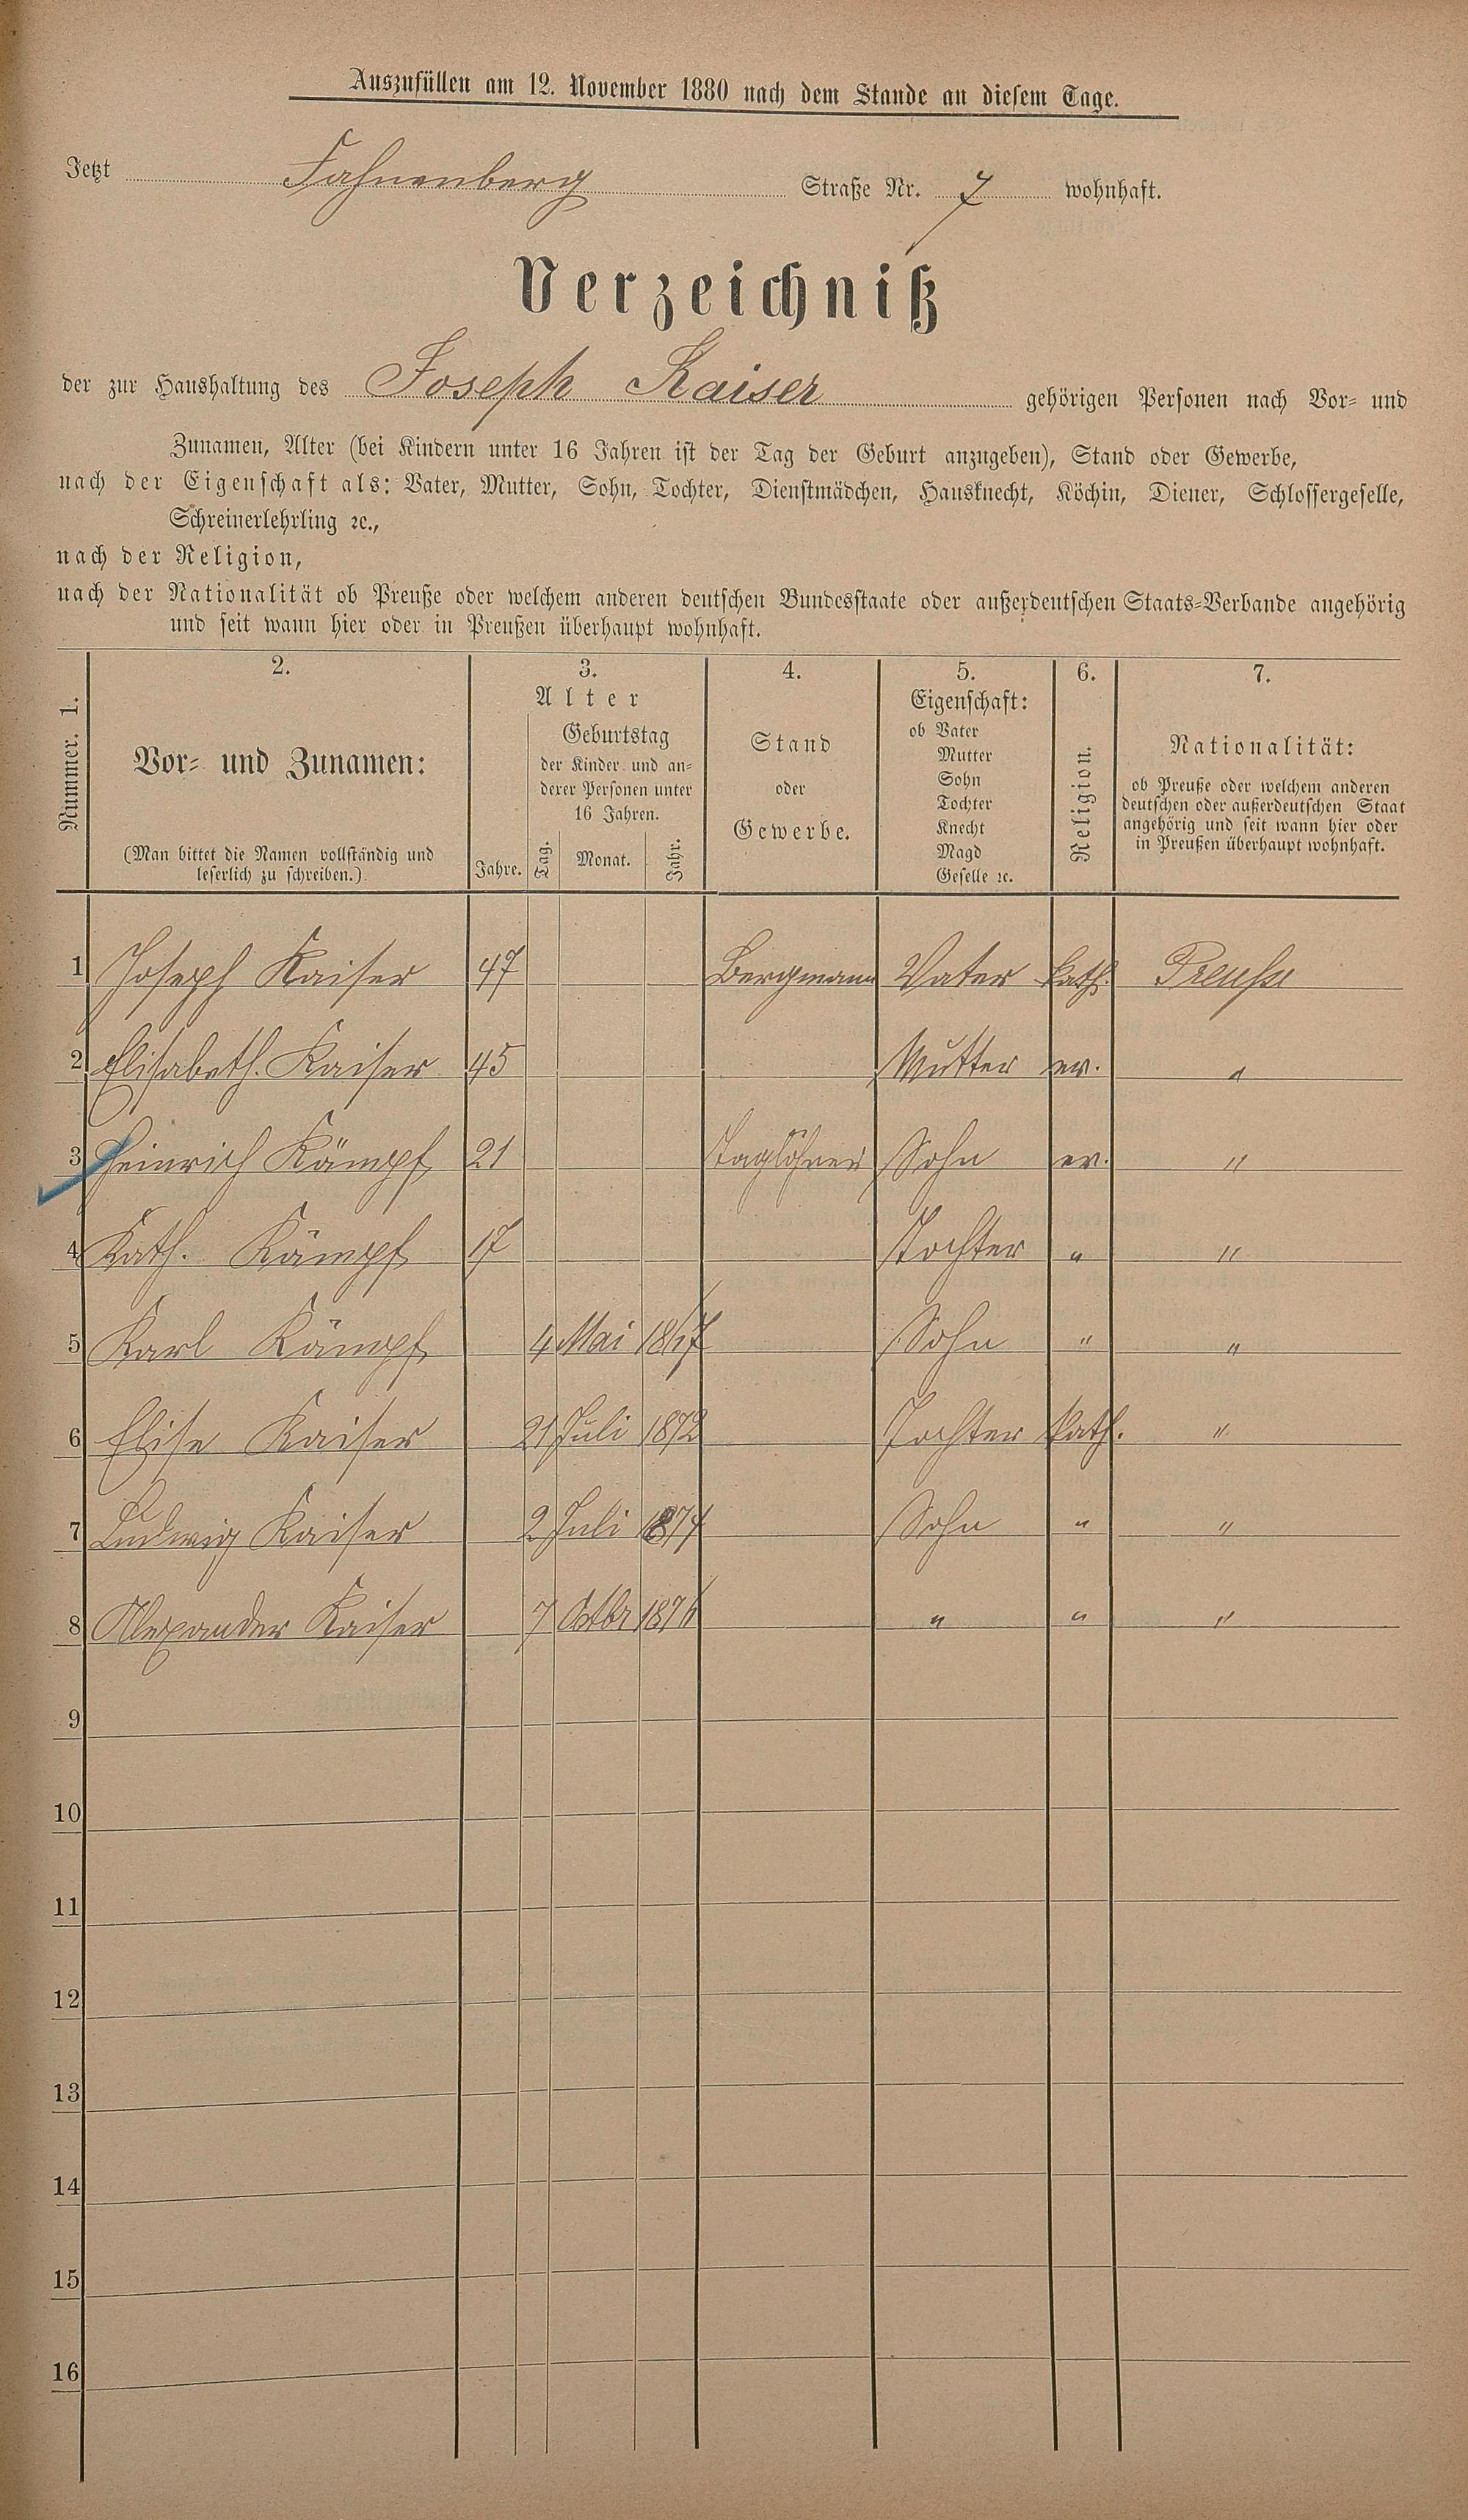 Auszufüllen am 12. November 1880 nach dem Stande an diesem Tage.
Jetzt Fahnenberg Straße Nr. 7 wohnhaft.
Verzeichniß
der zur Haushaltung des Joseph Kaiser gehörigen Personen nach Vor- und
Zunamen, Alter (bei Kindern unter 16 Jahren ist der Tag der Geburt anzugeben), Stand oder Gewerbe,
nach der Eigenschaft als: Vater, Mutter, Sohn, Tochter, Dienstmädchen, Hausknecht, Köchin, Diener, Schlossergeselle,
Schreinerlehrling ꝛc.,
nach der Religion,
nach der Nationalität ob Preuße oder welchem anderen deutschen Bundesstaate oder außerdeutschen Staats-Verbande angehörig
und seit wann hier oder in Preußen überhaupt wohnhaft.
Nummer. 1.
2.
Vor- und Zunamen:
(Man bittet die Namen vollständig und
leserlich zu schreiben.)
3.
Alter
Jahre.
Geburtstag
der Kinder und an-
derer Personen unter
16 Jahren.
Tag. Monat. Jahr.
4.
Stand
oder
Gewerbe.
5.
Eigenschaft:
ob Vater
Mutter
Sohn
Tochter
Knecht
Magd
Geselle ꝛc.
6.
Religion.
7.
Nationalität:
ob Preuße oder welchem anderen
deutschen oder außerdeutschen Staat
angehörig und seit wann hier oder
in Preußen überhaupt wohnhaft.
1 Joseph Kaiser 47 Bergmann Vater kath. Preusse
2 Elisabeth. Kaiser 45 Mutter ev. "
3 Heinrich Kämpf 21 Taglöhner Sohn ev. "
4 Kath. Kämpf 17 Tochter " "
5 Karl Kämpf 4 Mai Sohn " "
6 Elise Kaiser 21 Juli 1872 Tochter kath. "
7 Ludwig Kaiser 2 Juli 1874 Sohn " "
8 Alexander Kaiser 7 Octbr 1876 " " "
9
10
11
12
13
14
15
16